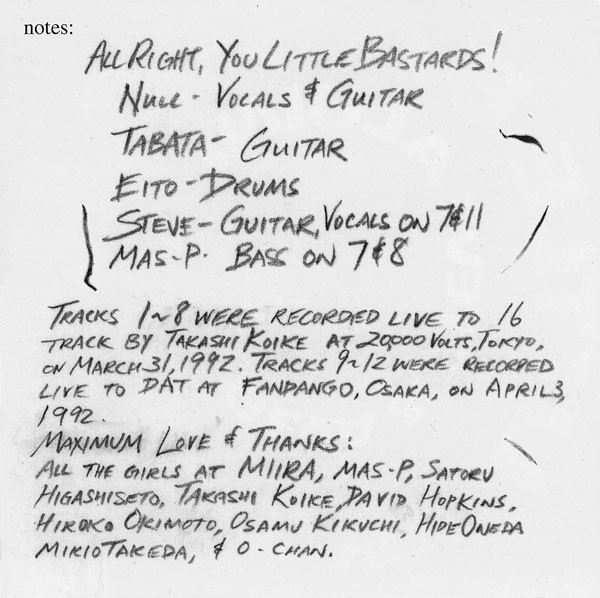 notes:
ALL RIGHT, YOU LITTLE BASTARDS!
NULL - VOCALS & GUITAR
TABATA - GUITAR
EITO - DRUMS
STEVE - GUITAR, VOCALS ON 7 & 11
MAS-P. BASS ON 7 & 8
TRACKS 1~8 WERE RECORDED LIVE TO 16
TRACK BY TAKASHI KOIKE AT 20,000 VOLTS, TOKYO,
ON MARCH 31, 1992. TRACKS 9~12 WERE RECORDED
LIVE TO DAT AT FANDANGO, OSAKA, ON APRIL 3,
1992.
MAXIMUM LOVE & THANKS:
ALL THE GIRLS AT MIIRA, MAS-P, SATORU
HIGASHISETO, TAKASHI KOIKE, DAVID HOPKINS,
HIROKO OKIMOTO, OSAMU KIKUCHI, HIDE ONEDA
MIKIO TAKEDA, & O-CHAN.